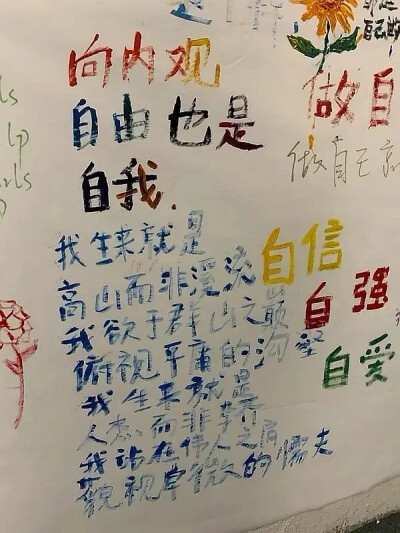 向内观
自由也是
自我.
我生来就是
高山而非溪流
我欲于群山之巅
俯视平庸的沟壑
我生来就是
人杰而非草芥
我站在伟人之肩
藐视卑微的懦夫
做自
做自己
自信
自强
自爱
ls
lp